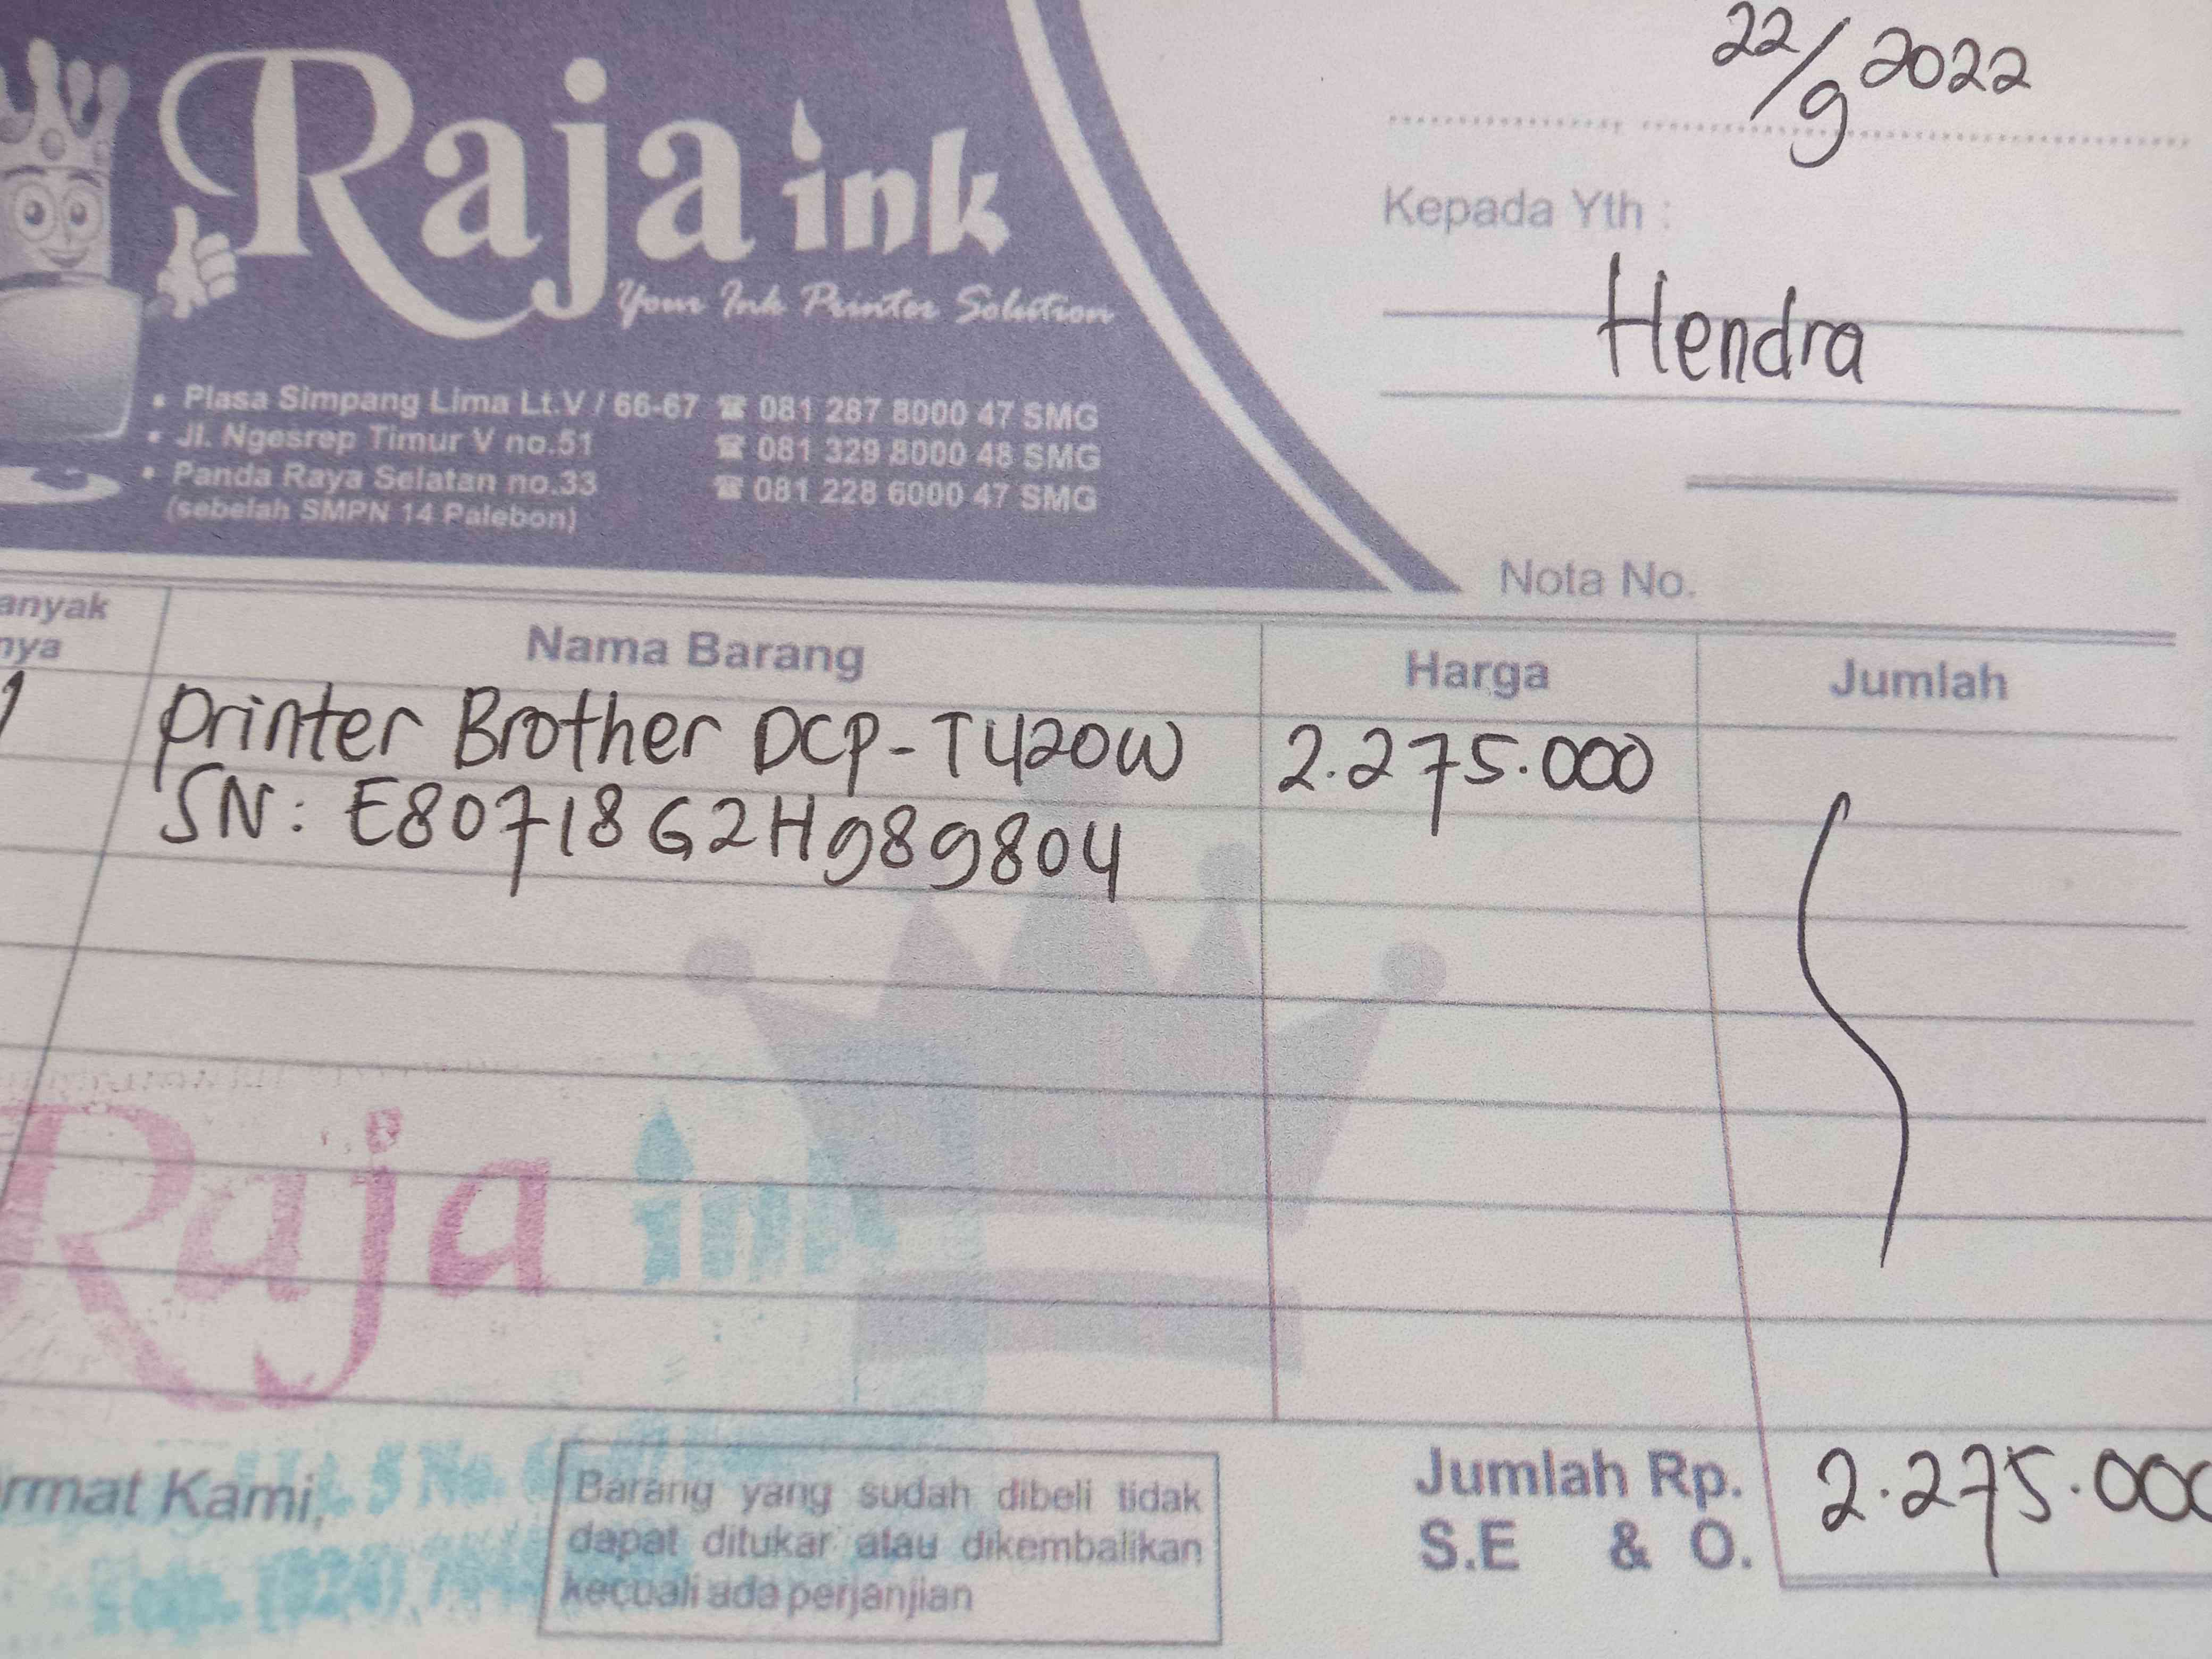 Raja ink
Your Ink Printer Solution
• Plasa Simpang Lima Lt.V / 66-67 ☎ 081 287 8000 47 SMG
• Jl. Ngesrep Timur V no.51 ☎ 081 329 8000 48 SMG
• Panda Raya Selatan no.33 ☎ 081 228 6000 47 SMG
(sebelah SMPN 14 Palebon)
22/9 2022
Kepada Yth :
Hendra
Nota No.
anyak
nya
Nama Barang Harga Jumlah
1 Printer Brother DCP-T420W 2.275.000
SN: E80718G2H989804
Raja ink
Lt. 5 No.
rmat Kami,
Barang yang sudah dibeli tidak
dapat ditukar atau dikembalikan
kecuali ada perjanjian
Jumlah Rp. 2.275.000
S.E & O.